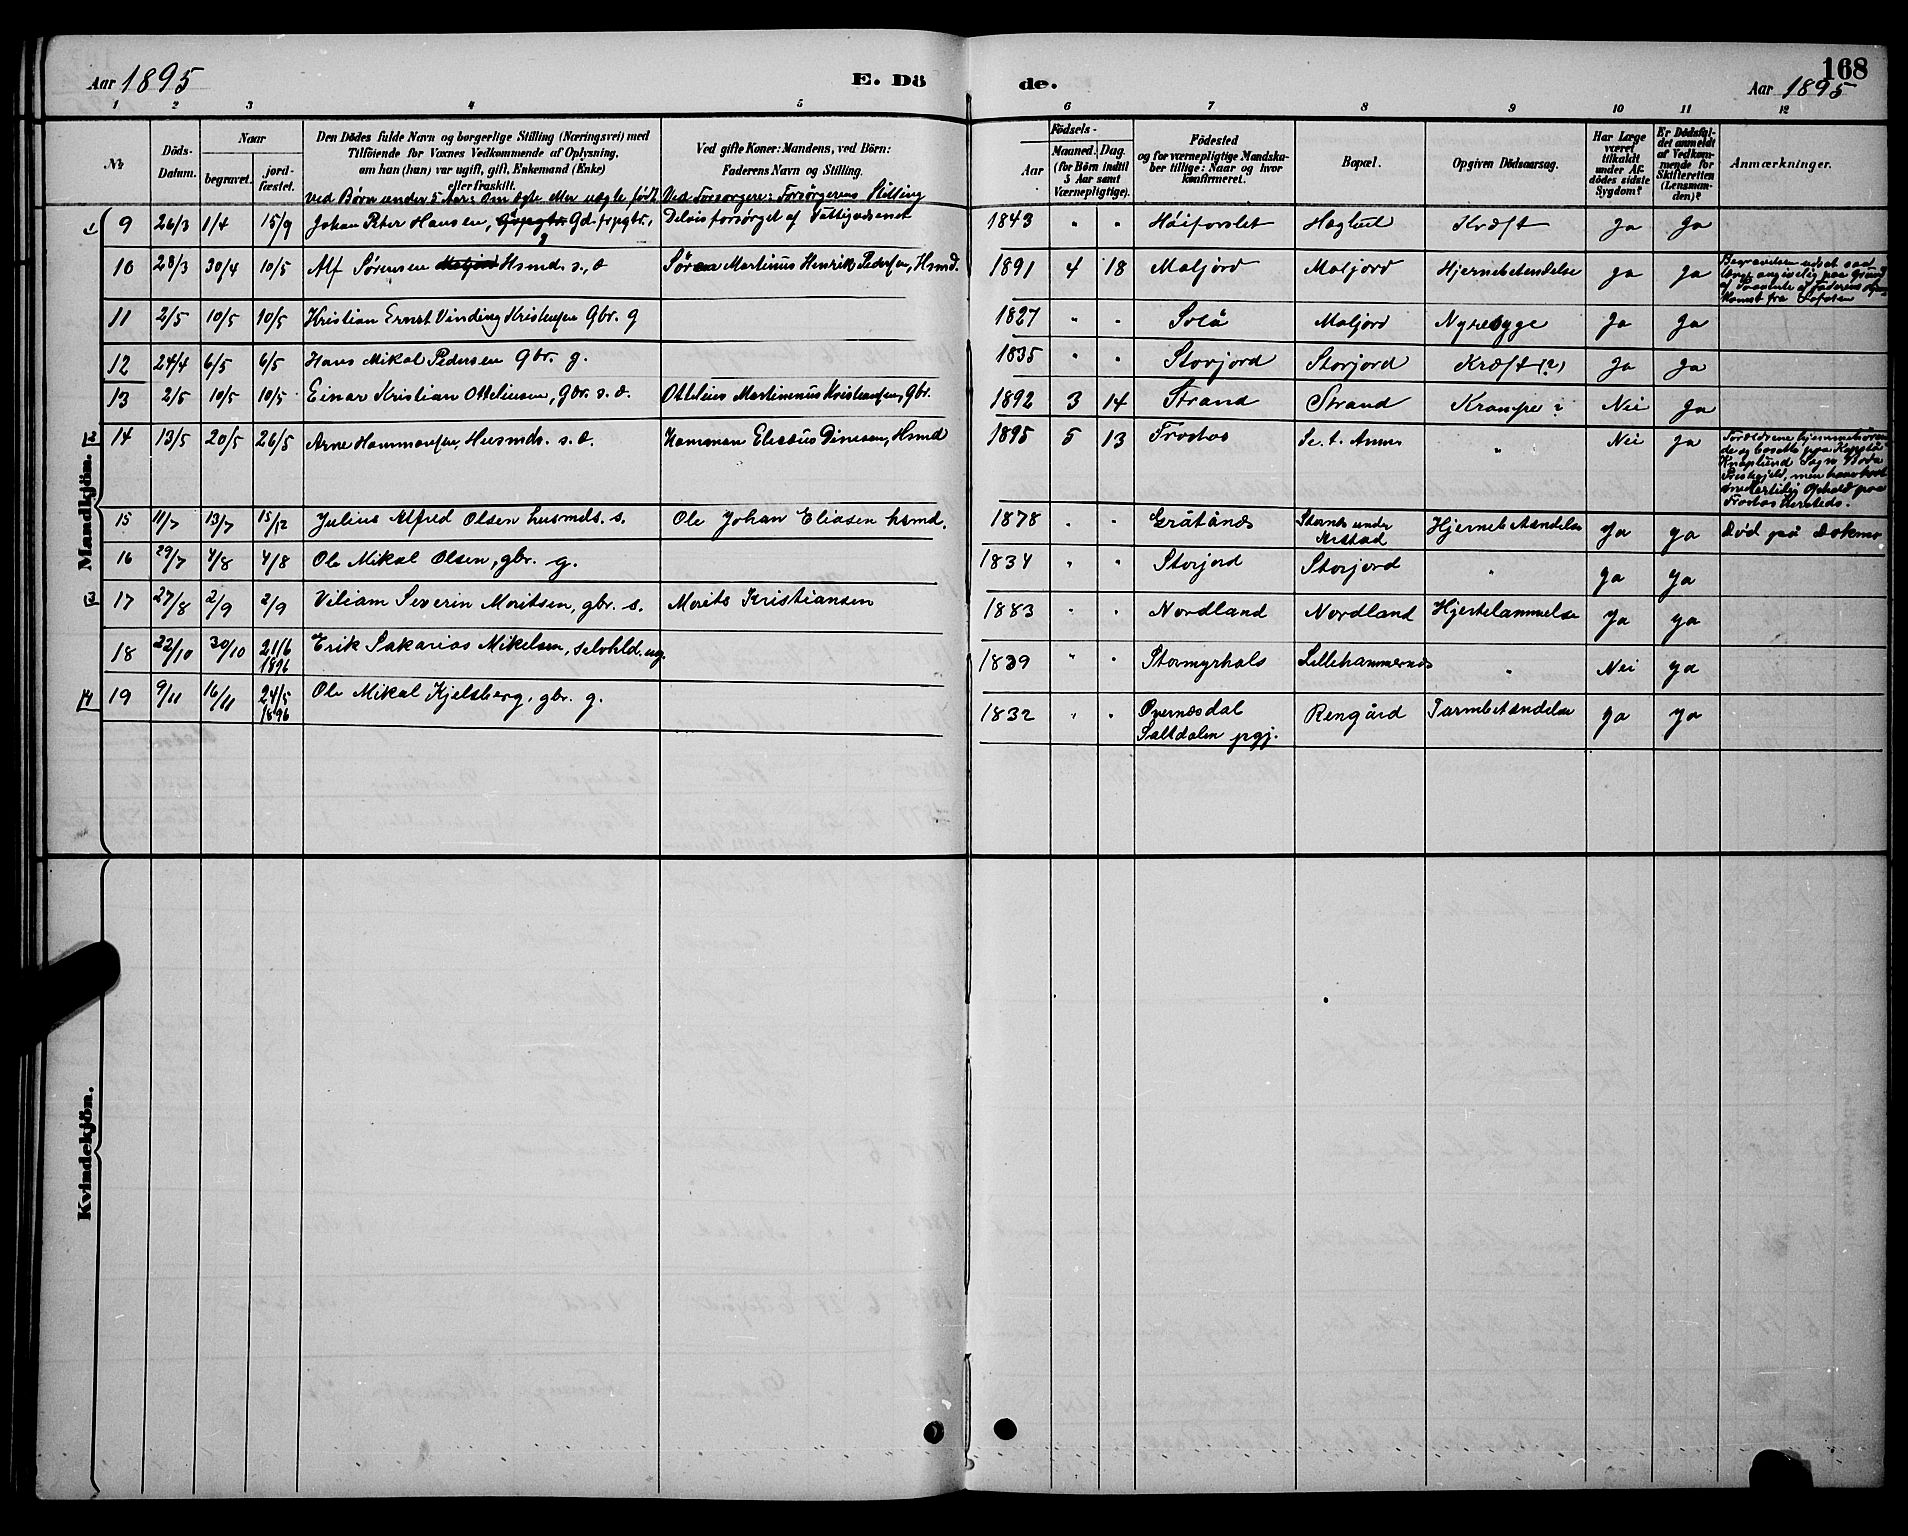 Aar 1895 E. Dö de. Aar 1895 168
1 2 3 4 5 6 7 8 9 10 11 12
No
Döds-Datum.
Naar
begravet.
jord-fæstet.
Den Dödes fulde Navn og borgerlige Stilling (Næringsvei) med
Tilföiende for Voxnes Vedkommende af Oplysning,
om han (hun) var ugift, gift, Enkemand (Enke)
eller fraskilt.
ved Börn under 5 Aar: Om ægte eller uægte født
Ved gifte Koner: Mandens, ved Börn:
Faderens Navn og Stilling.
Ved Forsørgere: Forsørgerens Stilling
Födsels-
Aar
Maaned. Dag.
(for Börn indtil
5 Aar samt
Værnepligtige).
Födested
og for værnepligtige Mandska-
ber tillige: Naar og hvor
konfirmeret.
Bopæl.
Opgiven Dödsaarsag.
Har Læge
været
tilkaldt
under Af-
dödes sidste
Sygdom?
Er Dödsfal-
det anmeldt
af Vedkom-
mende for
Skifteretten
(Lensman-
den)?
Anmærkninger.
Mandkjön.
1 9 26/3 1/4 15/9 Johan Peter Hansen, Gd. Delvis forsørget af Fattigvæsenet 1843 " " Høiforslet Haglud Kræft Ja Ja
10 28/3 30/4 10/5 Alf Sørensen Hsmds. s., æ Søren Martinus Henrik Pedersen, Hsmd. 1891 4 18 Maljord Maljord Hjernebetændelse Ja Ja Begravelsen udsat saa
længe angivelig paa Grund
af Faderens
Komst fra Lofoten
11 2/5 10/5 10/5 Kristian Ernst Vinding Kristensen Gbr. g 1827 " " Solå Maljord Nyresyge Ja Ja
12 24/4 6/5 6/5 Hans Mikal Pedersen Gbr. g. 1835 " " Storjord Storjord Kræft (?) Ja Ja
13 2/5 10/5 10/5 Einar Kristian Otteliussen, Gbr. s. æ. Ottelius Martinnus Kristensen, Gbr. 1892 3 14 Strand Strand Krampe ? Nei Ja
2 14 13/5 20/5 26/5 Arne Hammonsen, Husmds. s. æ. Hammon Elisæus Dinesen, Hsmd 1895 5 13 Frostos " Nei Ja Forældrene hjemmehøren
de og bosatte paa
Sogn Bodø
Præstegjeld, men havde
midlertidig Ophold paa
Frostos
15 11/7 13/7 15/12 Julius Alfred Olsen husmds. s. Ole Johan Eliasen hsmd. 1878 " " Gråtånes Stornes under
Arstad Hjernebetændelse Ja Ja Død på Dokmo
16 29/7 4/8 4/8 Ole Mikal Olsen, gbr. g. 1834 " " Storjord Storjord " Ja Ja
3 17 27/8 2/9 2/9 Viliam Severin Moritsen, gbr. s. Morits Kristiansen 1883 " " Nordland Nordland Hjertelammelse Ja Ja
18 22/10 30/10 21/6
1896 Erik Sakarias Mikelsen, selvhld. ug. 1839 " " Stormyrhals Lillehammernes " Nei Ja
4 19 9/11 16/11 24/5
1896 Ole Mikal Kjelsberg, gbr. g. 1832 " " Overnæsdal
Saltdalen pgj. Rengård Tarmbetændelse Ja Ja
Kvindekjön.